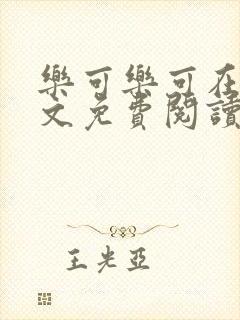 樂可樂可在
文免費閱讀
王光亞